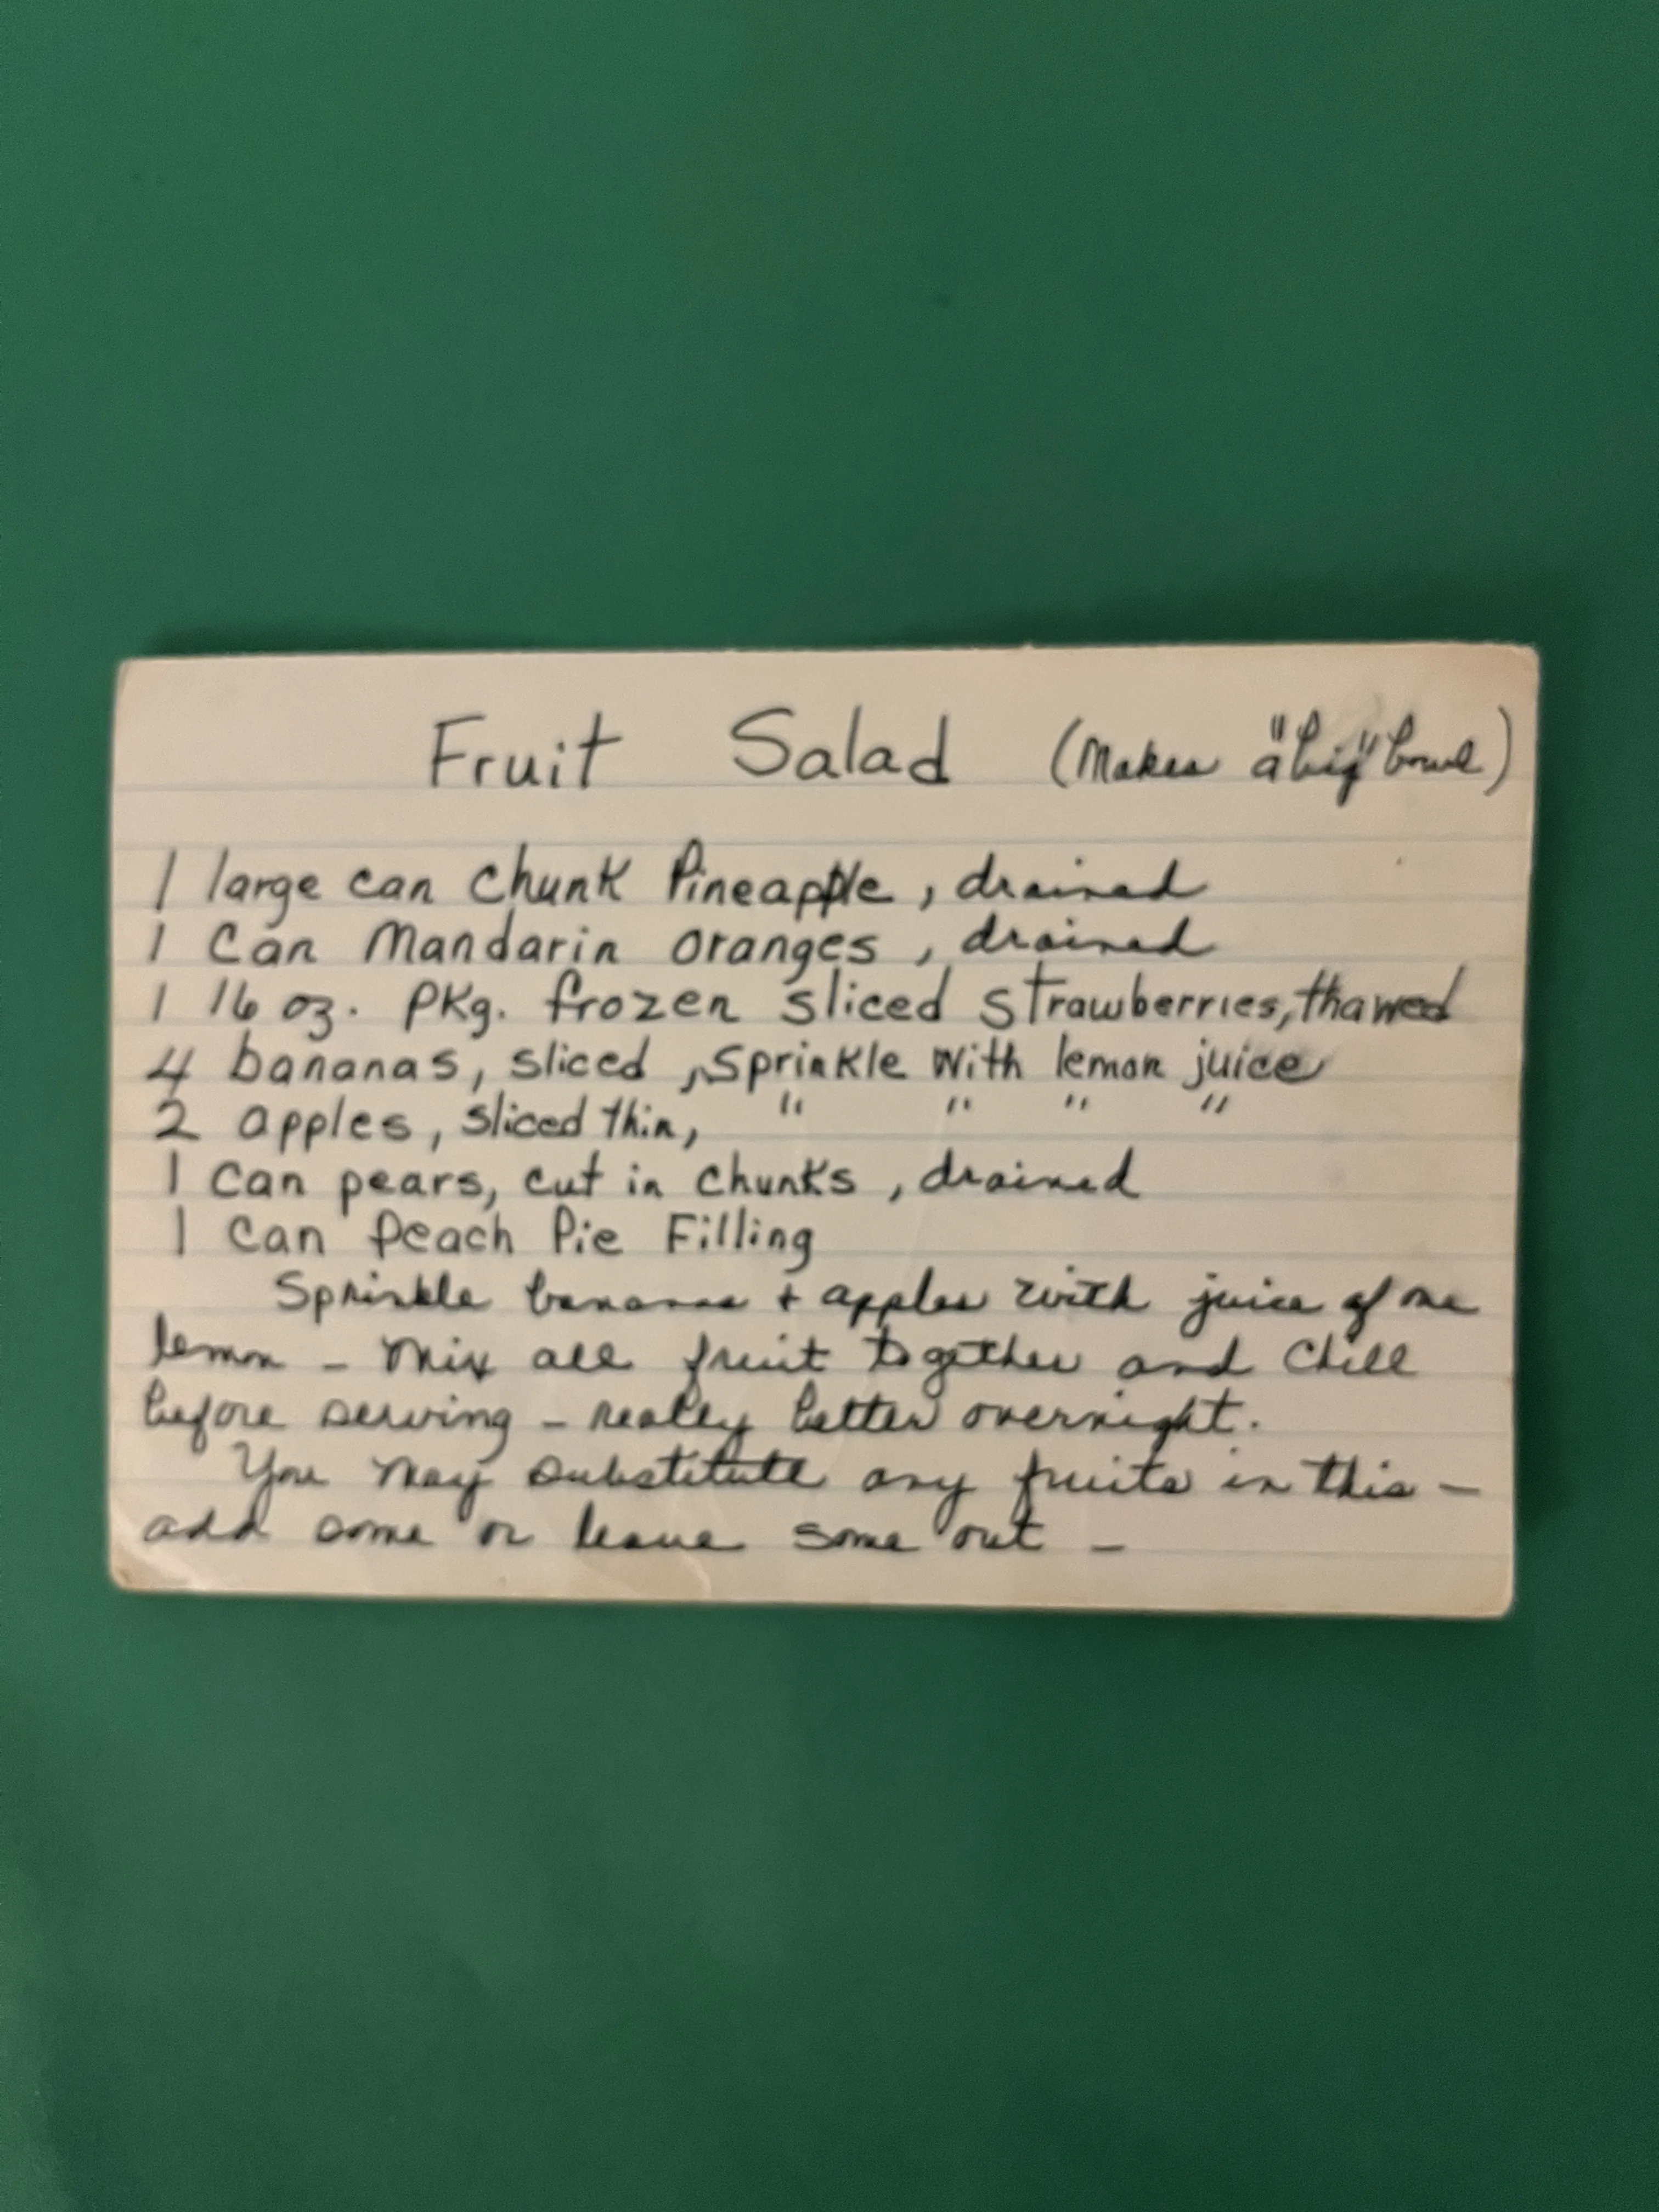 Fruit Salad (Makes "a big" bowl)
1 large can chunk Pineapple, drained
1 Can Mandarin oranges, drained
1 16 oz. pkg. frozen sliced strawberries, thawed
4 bananas, sliced, sprinkle with lemon juice
2 apples, sliced thin, " " " "
1 can pears, cut in chunks, drained
1 Can Peach Pie Filling
Sprinkle bananas + apples with juice of one
lemon - Mix all fruit together and chill
before serving - really better overnight.
You may substitute any fruits in this -
add some or leave some out -